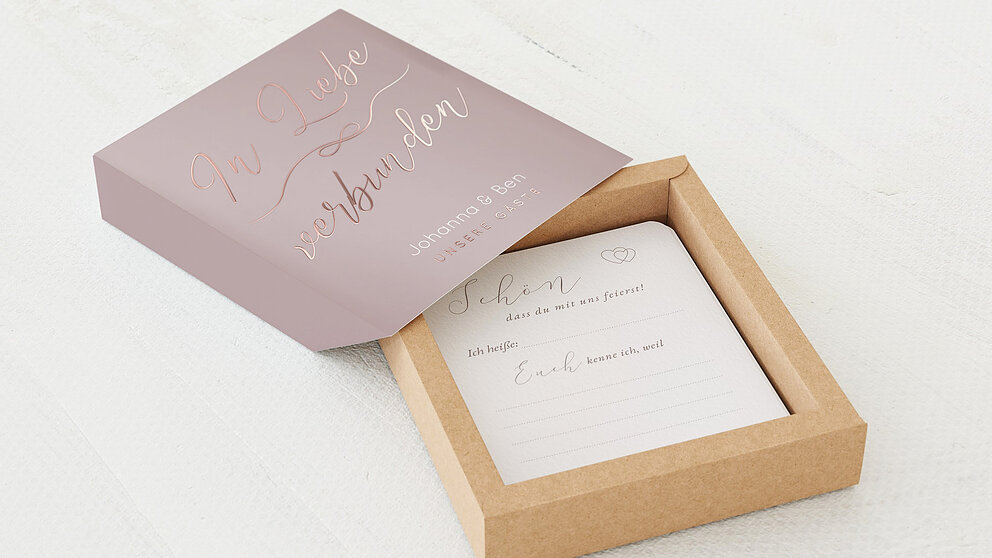 In Liebe
verbunden
Johanna & Ben
UNSERE GÄSTE
Schön
dass du mit uns feierst!
Ich heiße:
Euch kenne ich, weil